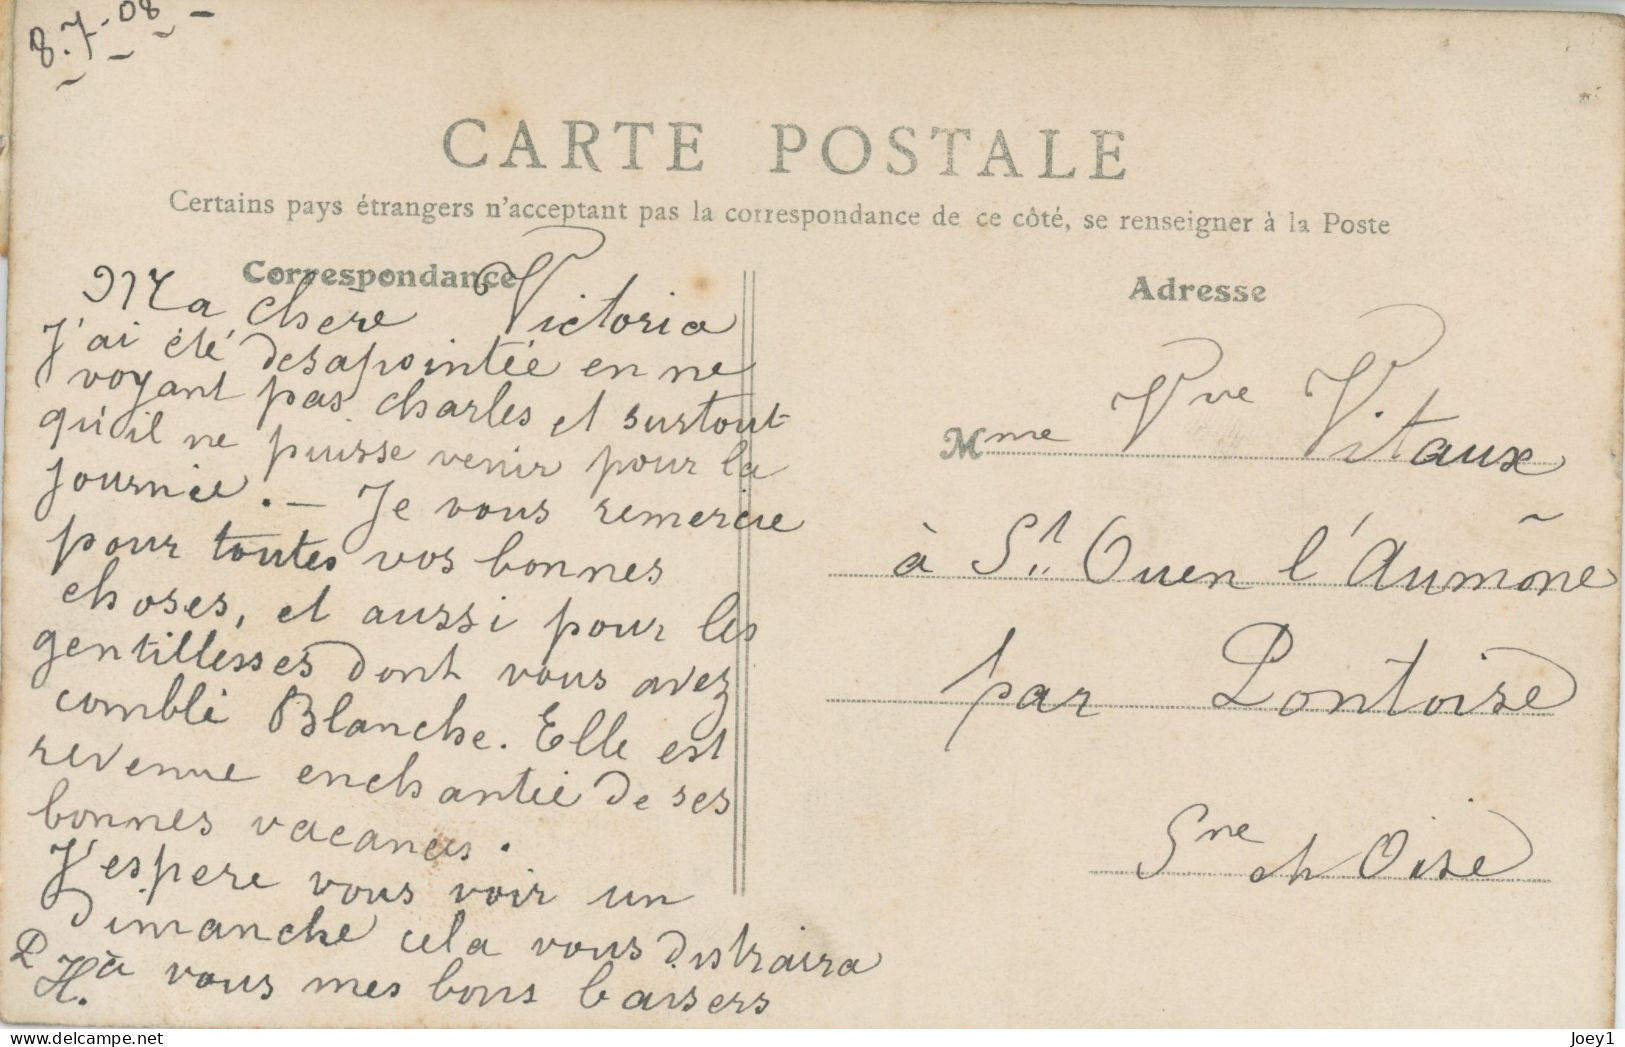 8.7-08-
CARTE POSTALE
Certains pays étrangers n'acceptant pas la correspondance de ce côté, se renseigner à la Poste
Correspondance
Ma chère Victoria
J'ai été desapointée en ne
voyant pas charles et surtout
qu'il ne puisse venir pour la
journée. — Je vous remercie
pour toutes vos bonnes
choses, et aussi pour les
gentillesses dont vous avez
comblé Blanche. Elle est
revenue enchantée de ses
bonnes vacances.
J'espere vous voir un
dimanche cela vous distraira
à vous mes bons baisers
P
H.
Adresse
Mme Vve Vitaux
à St. Ouen l'Aumône
par Pontoise
Sne et Oise
Joey1
delcampe.net